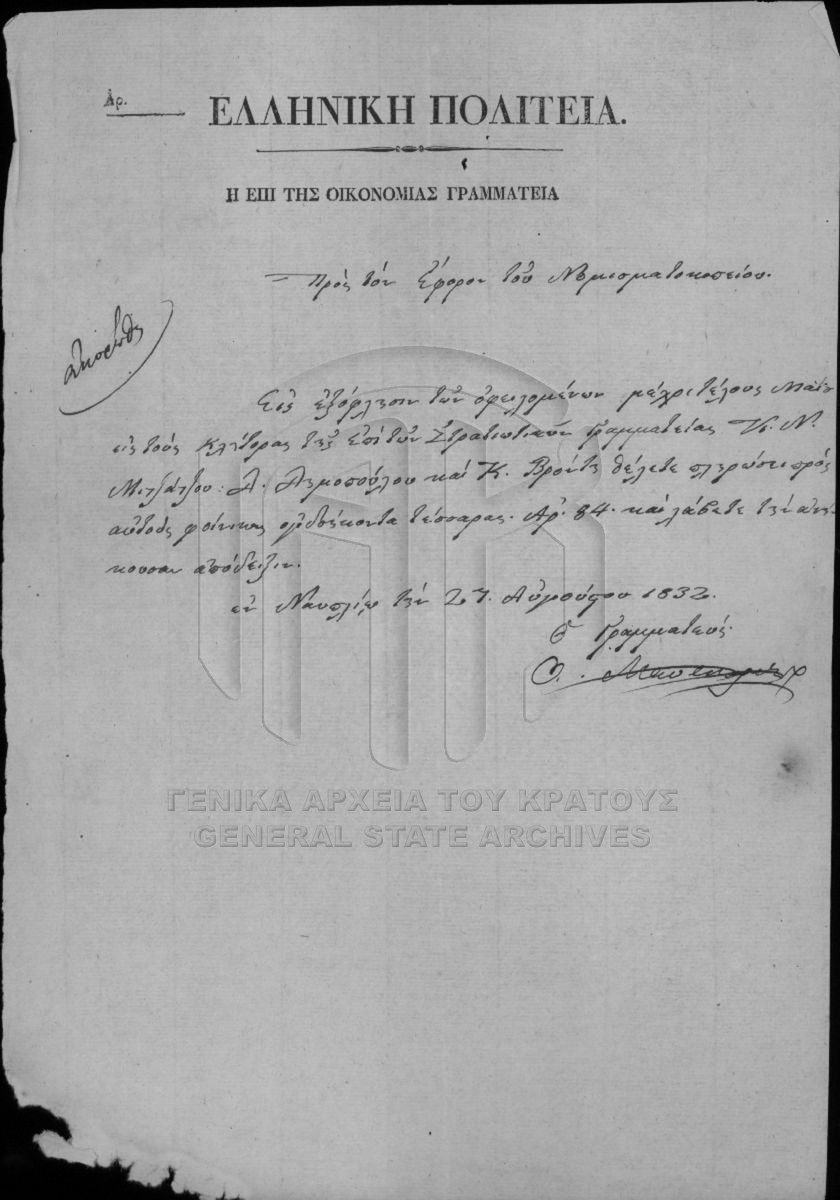 Ἀρ.
ΕΛΛΗΝΙΚΗ ΠΟΛΙΤΕΙΑ.
Η ΕΠΙ ΤΗΣ ΟΙΚΟΝΟΜΙΑΣ ΓΡΑΜΜΑΤΕΙΑ
Πρὸς τὸν Ἔφορον τοῦ Νομισματοκοπείου.
Εἰς ἐξόφλησιν τῶν ὀφειλομένων μέχρι τέλους Μαΐου
εἰς τοὺς κλήτορας τῆς ἐπὶ τῶν Στρατιωτικῶν Γραμματείας Ν.
καὶ Κ. θέλετε πληρώσει πρὸς
αὐτοὺς φοίνικας ὀγδοήκοντα τέσσαρας. Ἀρ. 84. καὶ λάβετε τὴν ἀνή-
κουσαν ἀπόδειξιν.
ἐν Ναυπλίῳ τὴν 27. Αὐγούστου 1832.
Ὁ Γραμματεὺς
ΓΕΝΙΚΑ ΑΡΧΕΙΑ ΤΟΥ ΚΡΑΤΟΥΣ
GENERAL STATE ARCHIVES